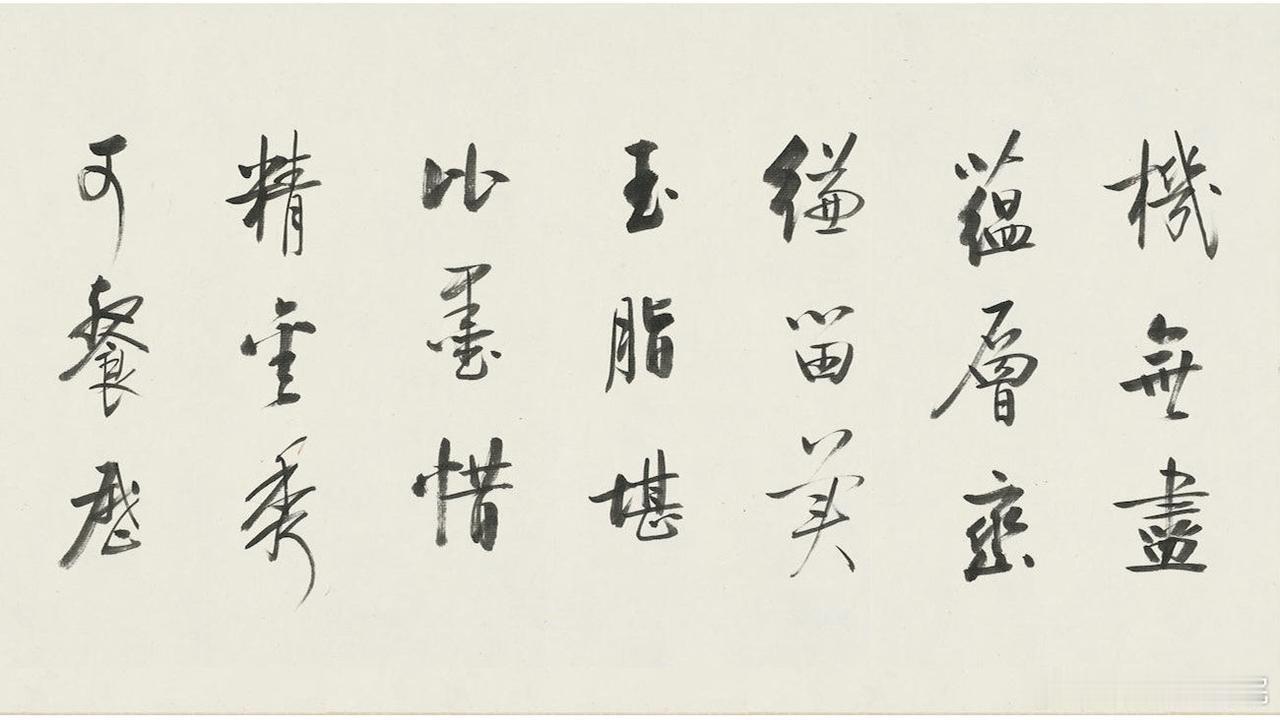 機無盡
蘊層巒
縑留美
玉脂堪
比墨惜
精金秀
可餐歷